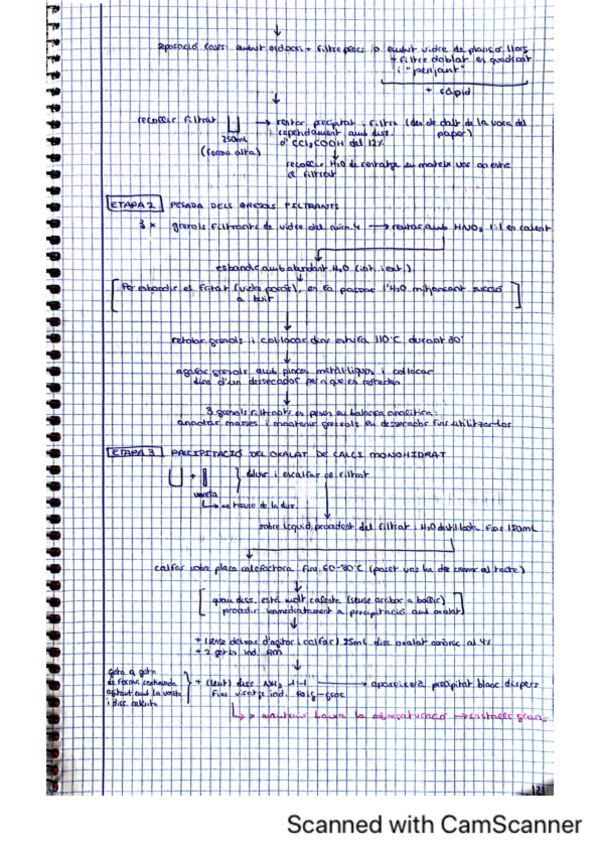 separació caseï: embut ordinari + filtre plecs /o embut vidre de plàncol llarg
+ filtre doblat en quadrant
i "penjant"
+ ràpid
recollir filtrat → rentar precipitat i filtre (des de dalt de la vora del
repetidament amb diss. paper)
250mL
d' CCl3COOH del 12%
(forma alta)
recollir H2O de rentatge en mateix vas on està
el filtrat
ETAPA 2 PESADA DELS GRESOLS FILTRANTS
3 x gresols filtrants de vidre del núm. 4 → rentar amb HNO3 1:1 en calent
esbandir amb abundant H2O (int. i ext.)
Per esbandir el fritat (vidre porós), es fa passar l'H2O mitjançant succió
a buit
retolar gresols i col·locar dins estufa 110°C durant 30'
agafar gresols amb pinces metàl·liques i col·locar
dins d'un dessecador per a que es refredin
3 gresols filtrants es pesen en balança analítica:
annotar masses i mantenir gresols en dessecador fins utilitzar-los
ETAPA 3 PRECIPITACIÓ DEL OXALAT DE CALCI MONOHIDRAT
+ diluir i escalfar el filtrat
vareta
→ no treure de la diss.
sobre líquid procedent del filtrat: H2O destil·lada fins 150mL
calfar sobre placa calefactora fins 60-80°C (paret vas ha de cremar al tacte)
quan diss. està molt calenta (sense arribar a bullir)
procedir immediatament a precipitació amb oxalat
+ (sense deixar d'agitar i calfar) 25mL diss. oxalat amònic al 4%
+ 2 gotes ind. RM
gota a gota
de forma continuada
agitant amb la vareta
i diss. calenta
+ (lent) diss. NH3 1:1 → aparició precipitat blanc dispers
fins viratge ind. roig-groc
→ x mantenir baixa la sobresaturació → cristalls grans
121
Scanned with CamScanner